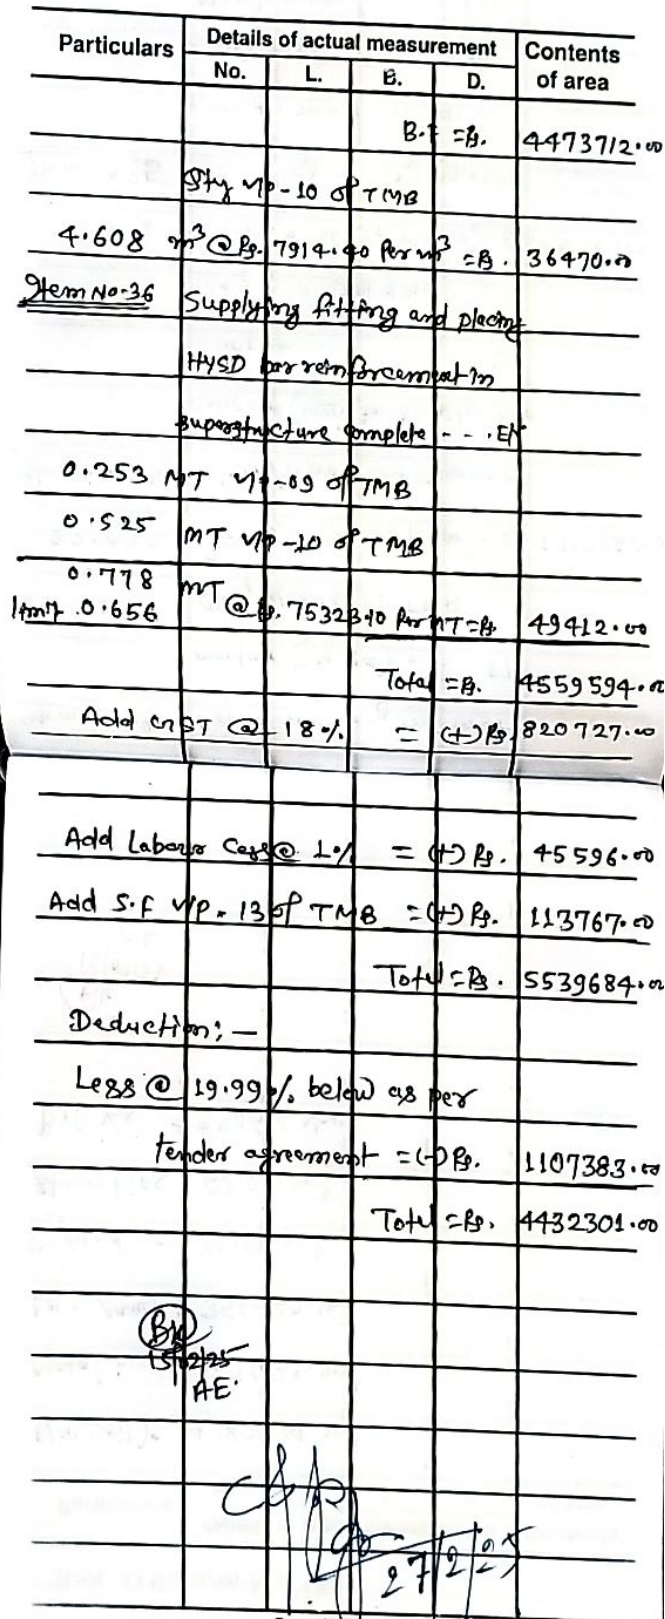 Particulars Details of actual measurement Contents of area
No. L. B. D.
B.F = Rs. 4473712.00
Qty v/p-10 of TMB
4.608 m³ @ Rs. 7914.40 Per m³ = Rs. 36470.00
Item No-36 Supplying fitting and placing
HYSD bar reinforcement in
superstructure complete - - . EI
0.253 MT v/p-09 of TMB
0.525 MT v/p-10 of TMB
0.778 MT
limit 0.656 @ Rs. 75323.10 Per MT = Rs 49412.00
Total = Rs. 4559594.00
Add GST @ 18% = (+) Rs. 820727.00
Add Labour Cess @ 1% = (+) Rs. 45596.00
Add S.F v/p. 13 of TMB = (+) Rs. 113767.00
Total = Rs. 5539684.00
Deduction: —
Less @ 19.99% below as per
tender agreement = (-) Rs. 1107383.00
Total = Rs. 4432301.00
15/02/25
AE.
27/2/25